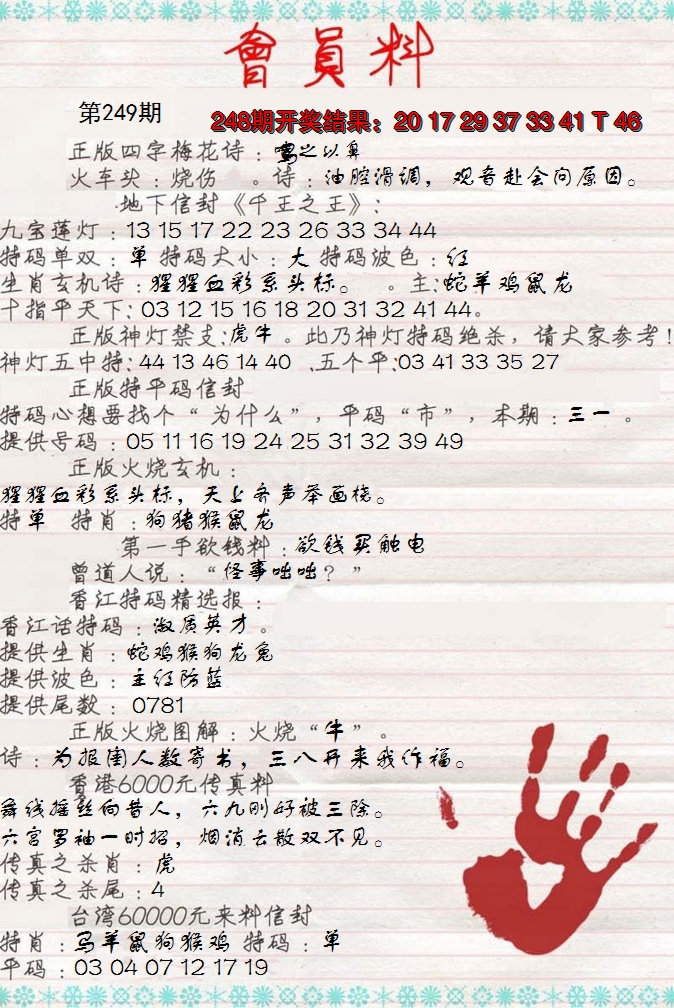 會員料
第249期
248期开奖结果：20 17 29 37 33 41 T 46
正版四字梅花诗：嗤之以鼻
火车头：烧伤 。诗：油腔滑调，观音赴会问原因。
地下信封《千王之王》：
九宝莲灯：13 15 17 22 23 26 33 34 44
特码单双：单 特码大小：大 特码波色：红
生肖玄机诗：猩猩血彩系头标。 。主：蛇羊鸡鼠龙
十指平天下：03 12 15 16 18 20 31 32 41 44。
正版神灯禁支：虎牛 。此乃神灯特码绝杀，请大家参考！
神灯五中特：44 13 46 14 40 .五个平：03 41 33 35 27
正版特平码信封
特码心想要找个“为什么”，平码“市”，本期：三一 。
提供号码：05 11 16 19 24 25 31 32 39 49
正版火烧玄机：
猩猩血彩系头标，天上齐声举画桡。
特单 特肖：狗猪猴鼠龙
第一手欲钱料：欲钱买触电
曾道人说：“怪事咄咄？”
香江特码精选报：
香江话特码：淑质英才 。
提供生肖：蛇鸡猴狗龙兔
提供波色：主红防蓝
提供尾数：0781
正版火烧图解：火烧“牛”。
诗：为报闺人数寄书，三八开来我作福。
香港6000元传真料
舞线摇丝向昔人，六九刚好被三除。
六宫罗袖一时招，烟消云散双不见。
传真之杀肖：虎
传真之杀尾：4
台湾60000元来料信封
特肖：马羊鼠狗猴鸡 特码：单
平码：03 04 07 12 17 19